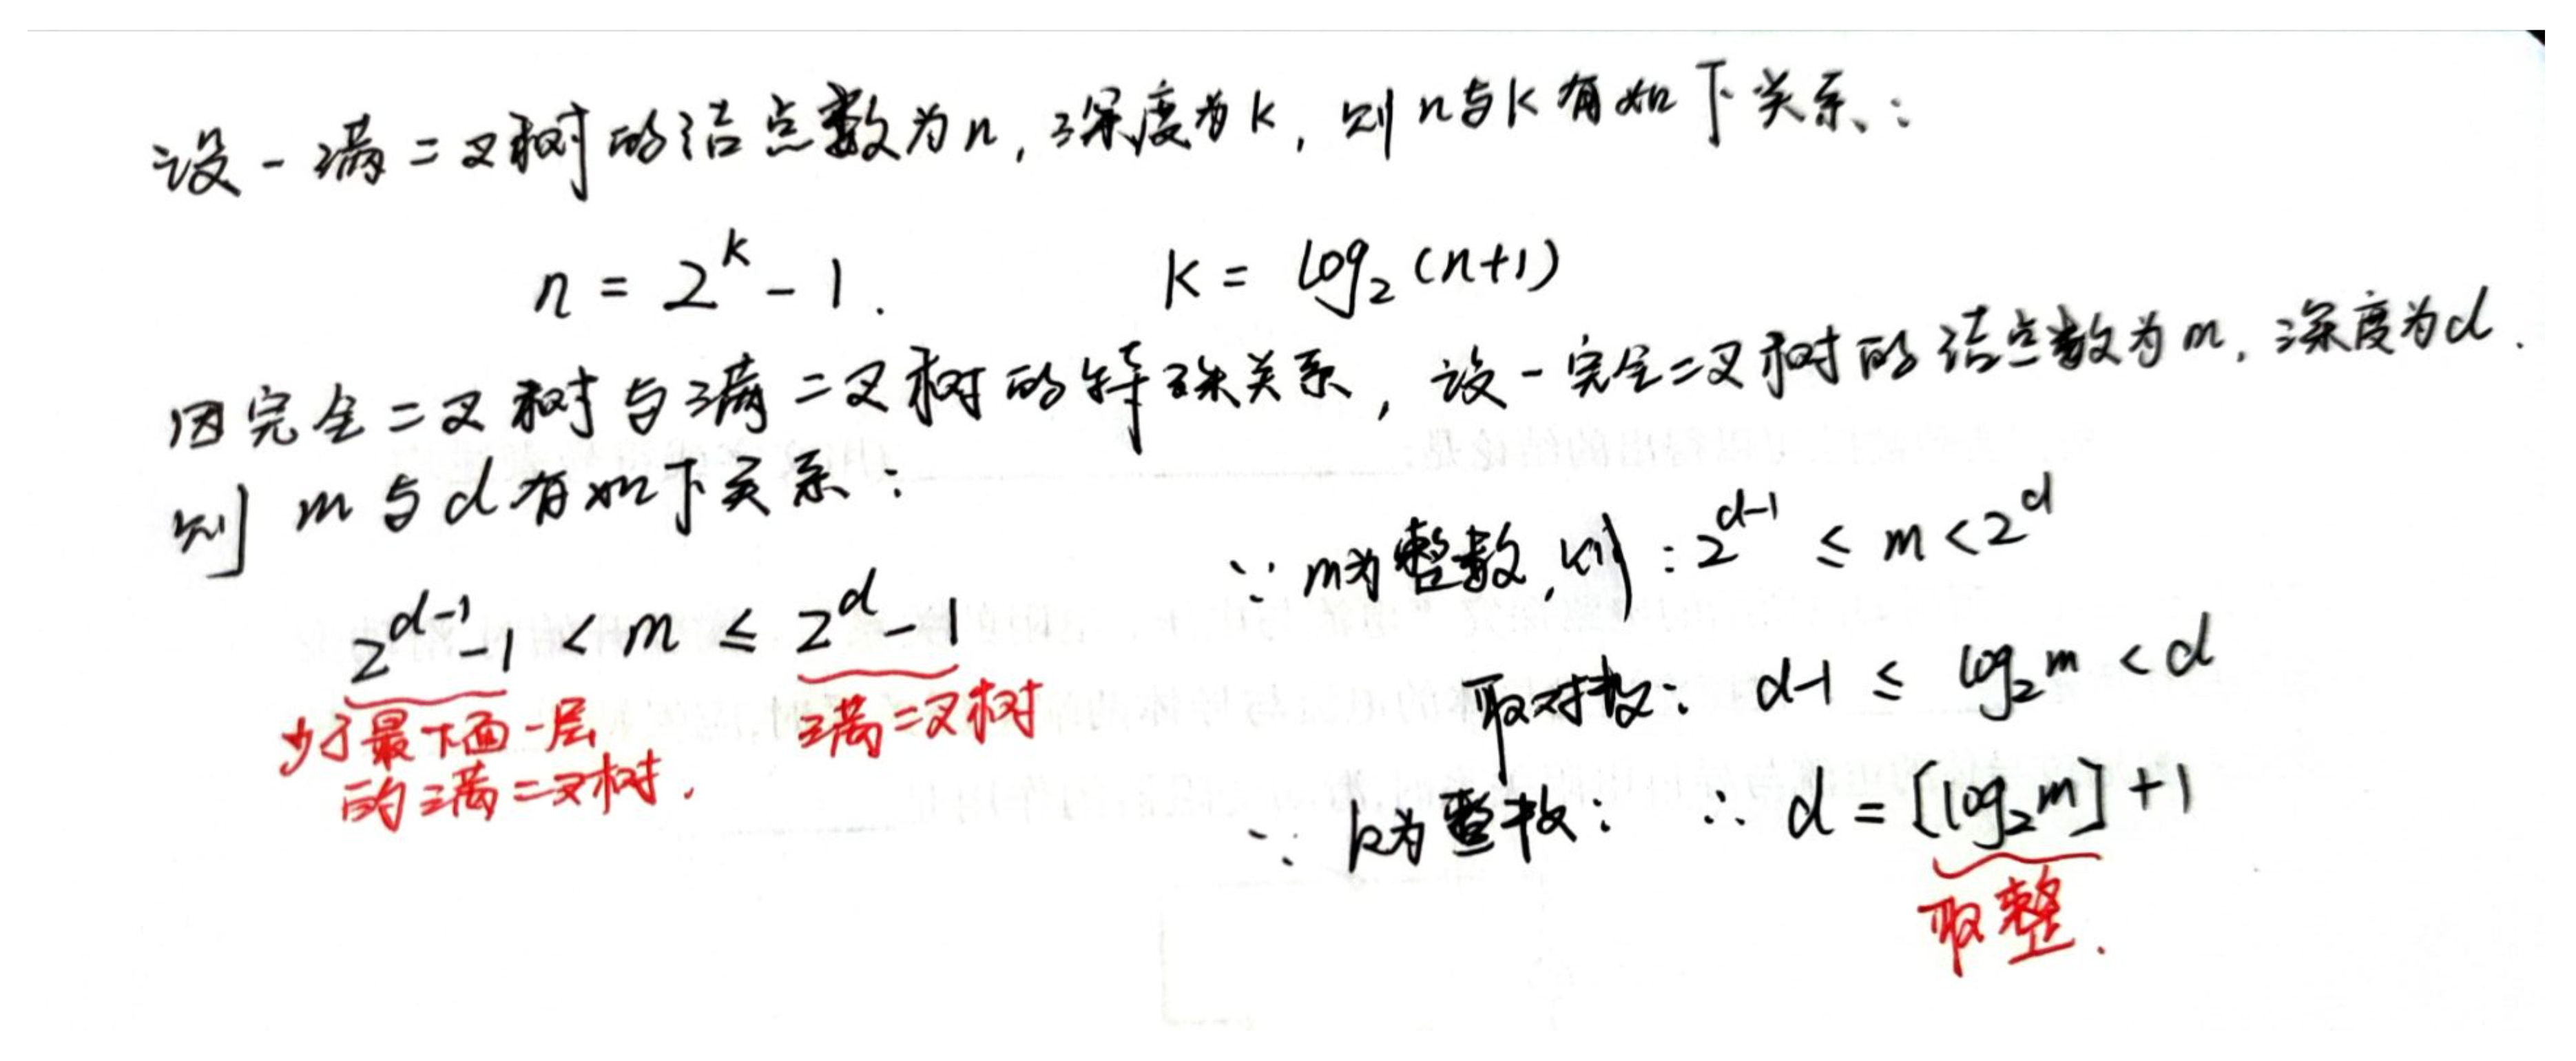 设一满二叉树的结点数为n，深度为k，则n与k有如下关系：
n = 2^k - 1.　　k = log₂(n+1)
因完全二叉树与满二叉树的特殊关系，设一完全二叉树的结点数为m，深度为d.
则m与d有如下关系：
2^(d-1) - 1 < m ≤ 2^d - 1
少了最下面一层
的满二叉树.
满二叉树
∵ m为整数，则：2^(d-1) ≤ m < 2^d
取对数：d-1 ≤ log₂m < d
∵ k为整数：∴ d = [log₂m] + 1
取整.